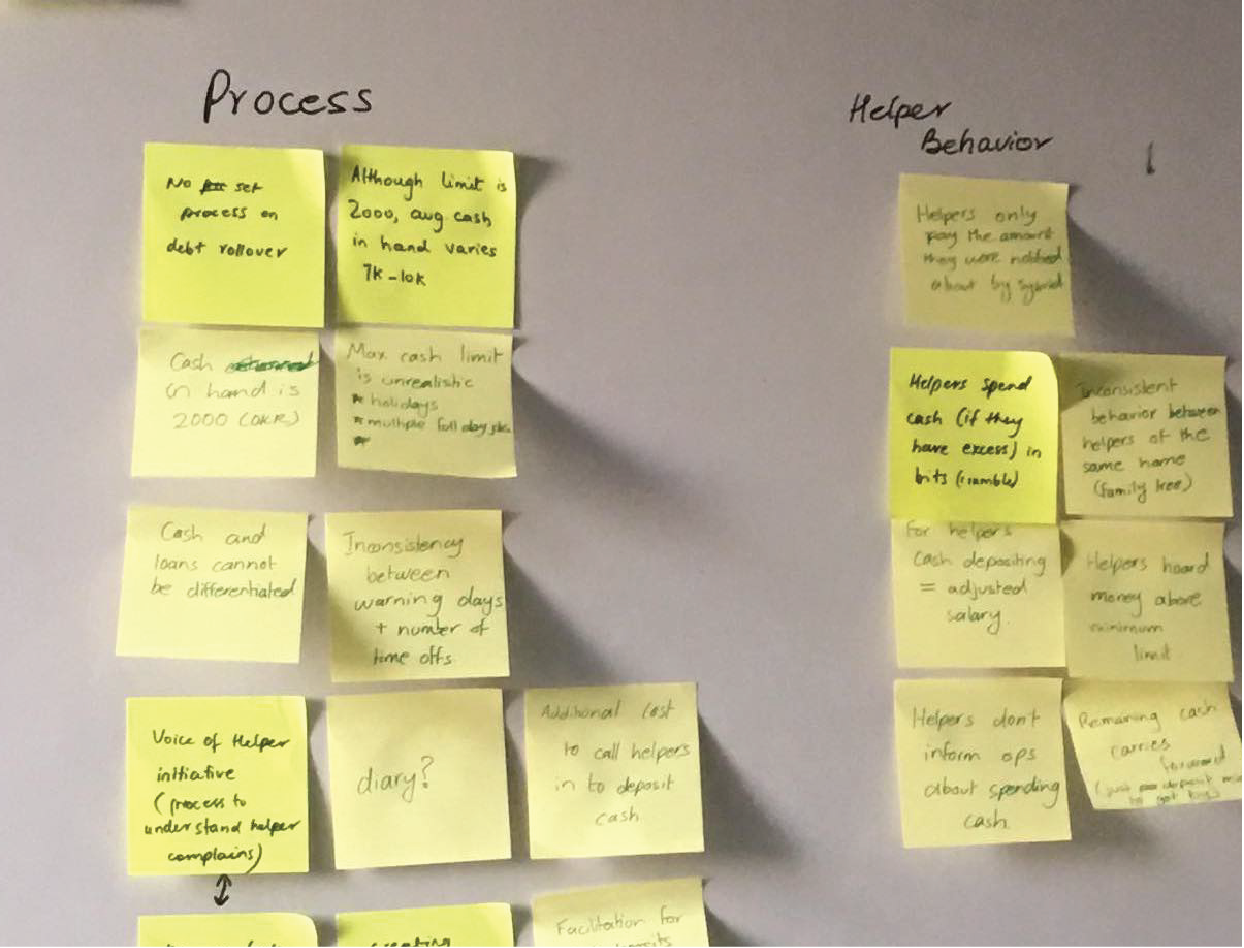 Process
No set
process on
debt rollover
Although limit is
2000, avg cash
in hand varies
7k-10k
Cash
in hand is
2000 (OKR)
Max cash limit
is unrealistic
* holidays
* multiple full day
Cash and
loans cannot
be differentiated
Inconsistency
between
warning days
+ number of
time offs
Voice of Helper
initiative
(process to
understand helper
complains)
diary?
Additional cost
to call helpers
in to deposit
cash
Facilitation for
Helper
Behavior
Helpers only
pay the amount
they were notified
about by
Helpers spend
cash (if they
have excess) in
bits
Inconsistent
behavior between
helpers of the
same home
(family tree)
For helpers
cash depositing
= adjusted
salary
Helpers hoard
money above
minimum
limit
Helpers don't
inform ops
about spending
cash
Remaining cash
carries
forward